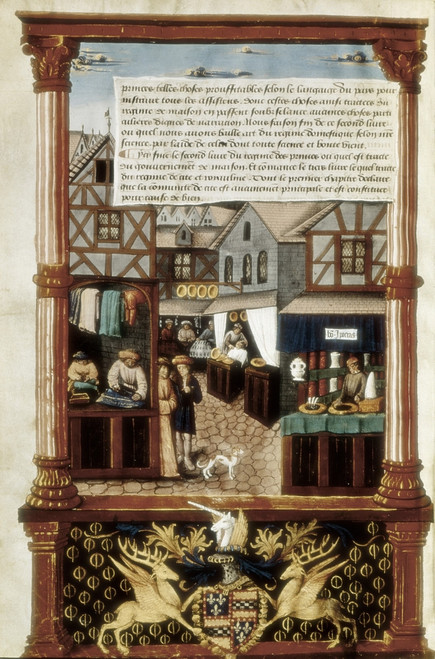 princes telles choses prouffitables selon le langaige du pays pour
instruire tous les assistens. Donc cestes choses ainsi traictees du
regime de maison en passent soubz silence aucunes choses parti
culieres dignes de narration. Nous faison fin de ce second livre
ou quel nous avons baille art du regime domestique selon nre
science. par laide de celui dont toute science et bonte vient.
Cy fine le second livre du regime des princes ou quel est traicte
du gouvernement de maison. Et commence le tiers livre le quel traicte
du regime de cite et royaulme. Dont le premier chapitre declaire
que la commuite de cite est aucunement principale et est constituee
pour cause de bien.
bo Ipocras